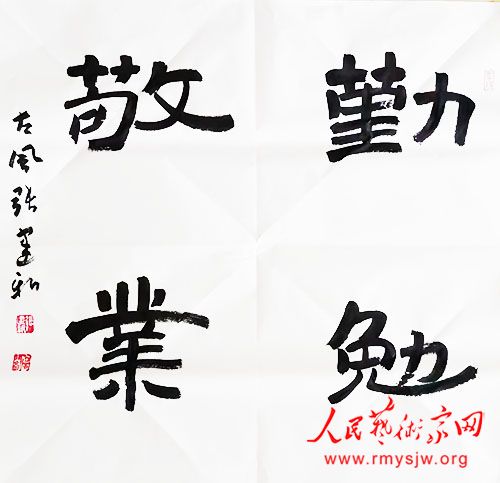 勤勉
敬業
古風張建新
人民藝術家网
www.rmysjw.org